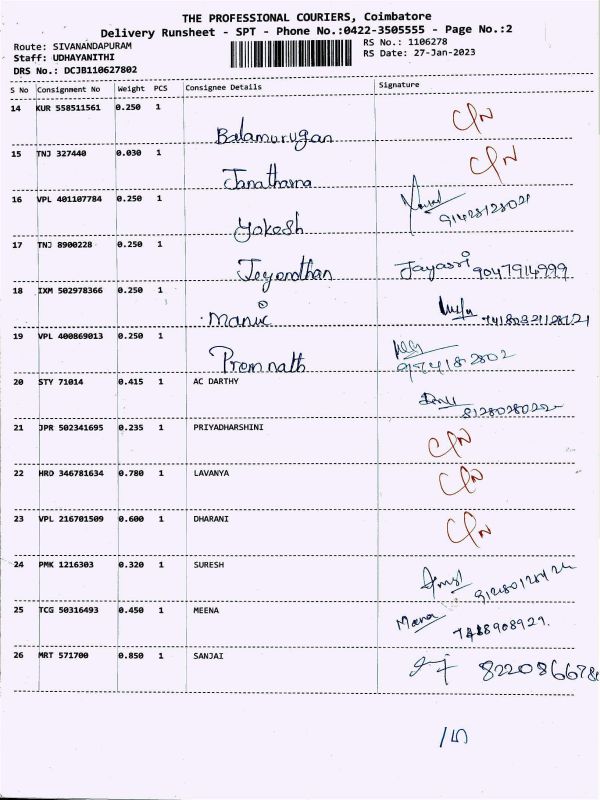 THE PROFESSIONAL COURIERS, Coimbatore
Delivery Runsheet - SPT - Phone No.:0422-3505555 - Page No.:2
Route: SIVANANDAPURAM
Staff: UDHAYANITHI
DRS No.: DCJB110627802
RS No.: 1106278
RS Date: 27-Jan-2023
S No Consignment No Weight PCS Consignee Details Signature
14 KUR 558511561 0.250 1 Balamurugan C/N
15 TNJ 327440 0.030 1 Janathana C/N
16 VPL 401107784 0.250 1 Yokesh
17 TNJ 8900228 0.250 1 Jeyanthan Jayasri 9047914999
18 IXM 502978366 0.250 1 Manic
19 VPL 400869013 0.250 1 Premnath
20 STY 71014 0.415 1 AC DARTHY 8128028022
21 JPR 502341695 0.235 1 PRIYADHARSHINI C/N
22 HRO 346781634 0.780 1 LAVANYA C/N
23 VPL 216701509 0.600 1 DHARANI C/N
24 PMK 1216303 0.320 1 SURESH
25 TCG 50316493 0.450 1 MEENA Meena
26 MRT 571700 0.850 1 SANJAI